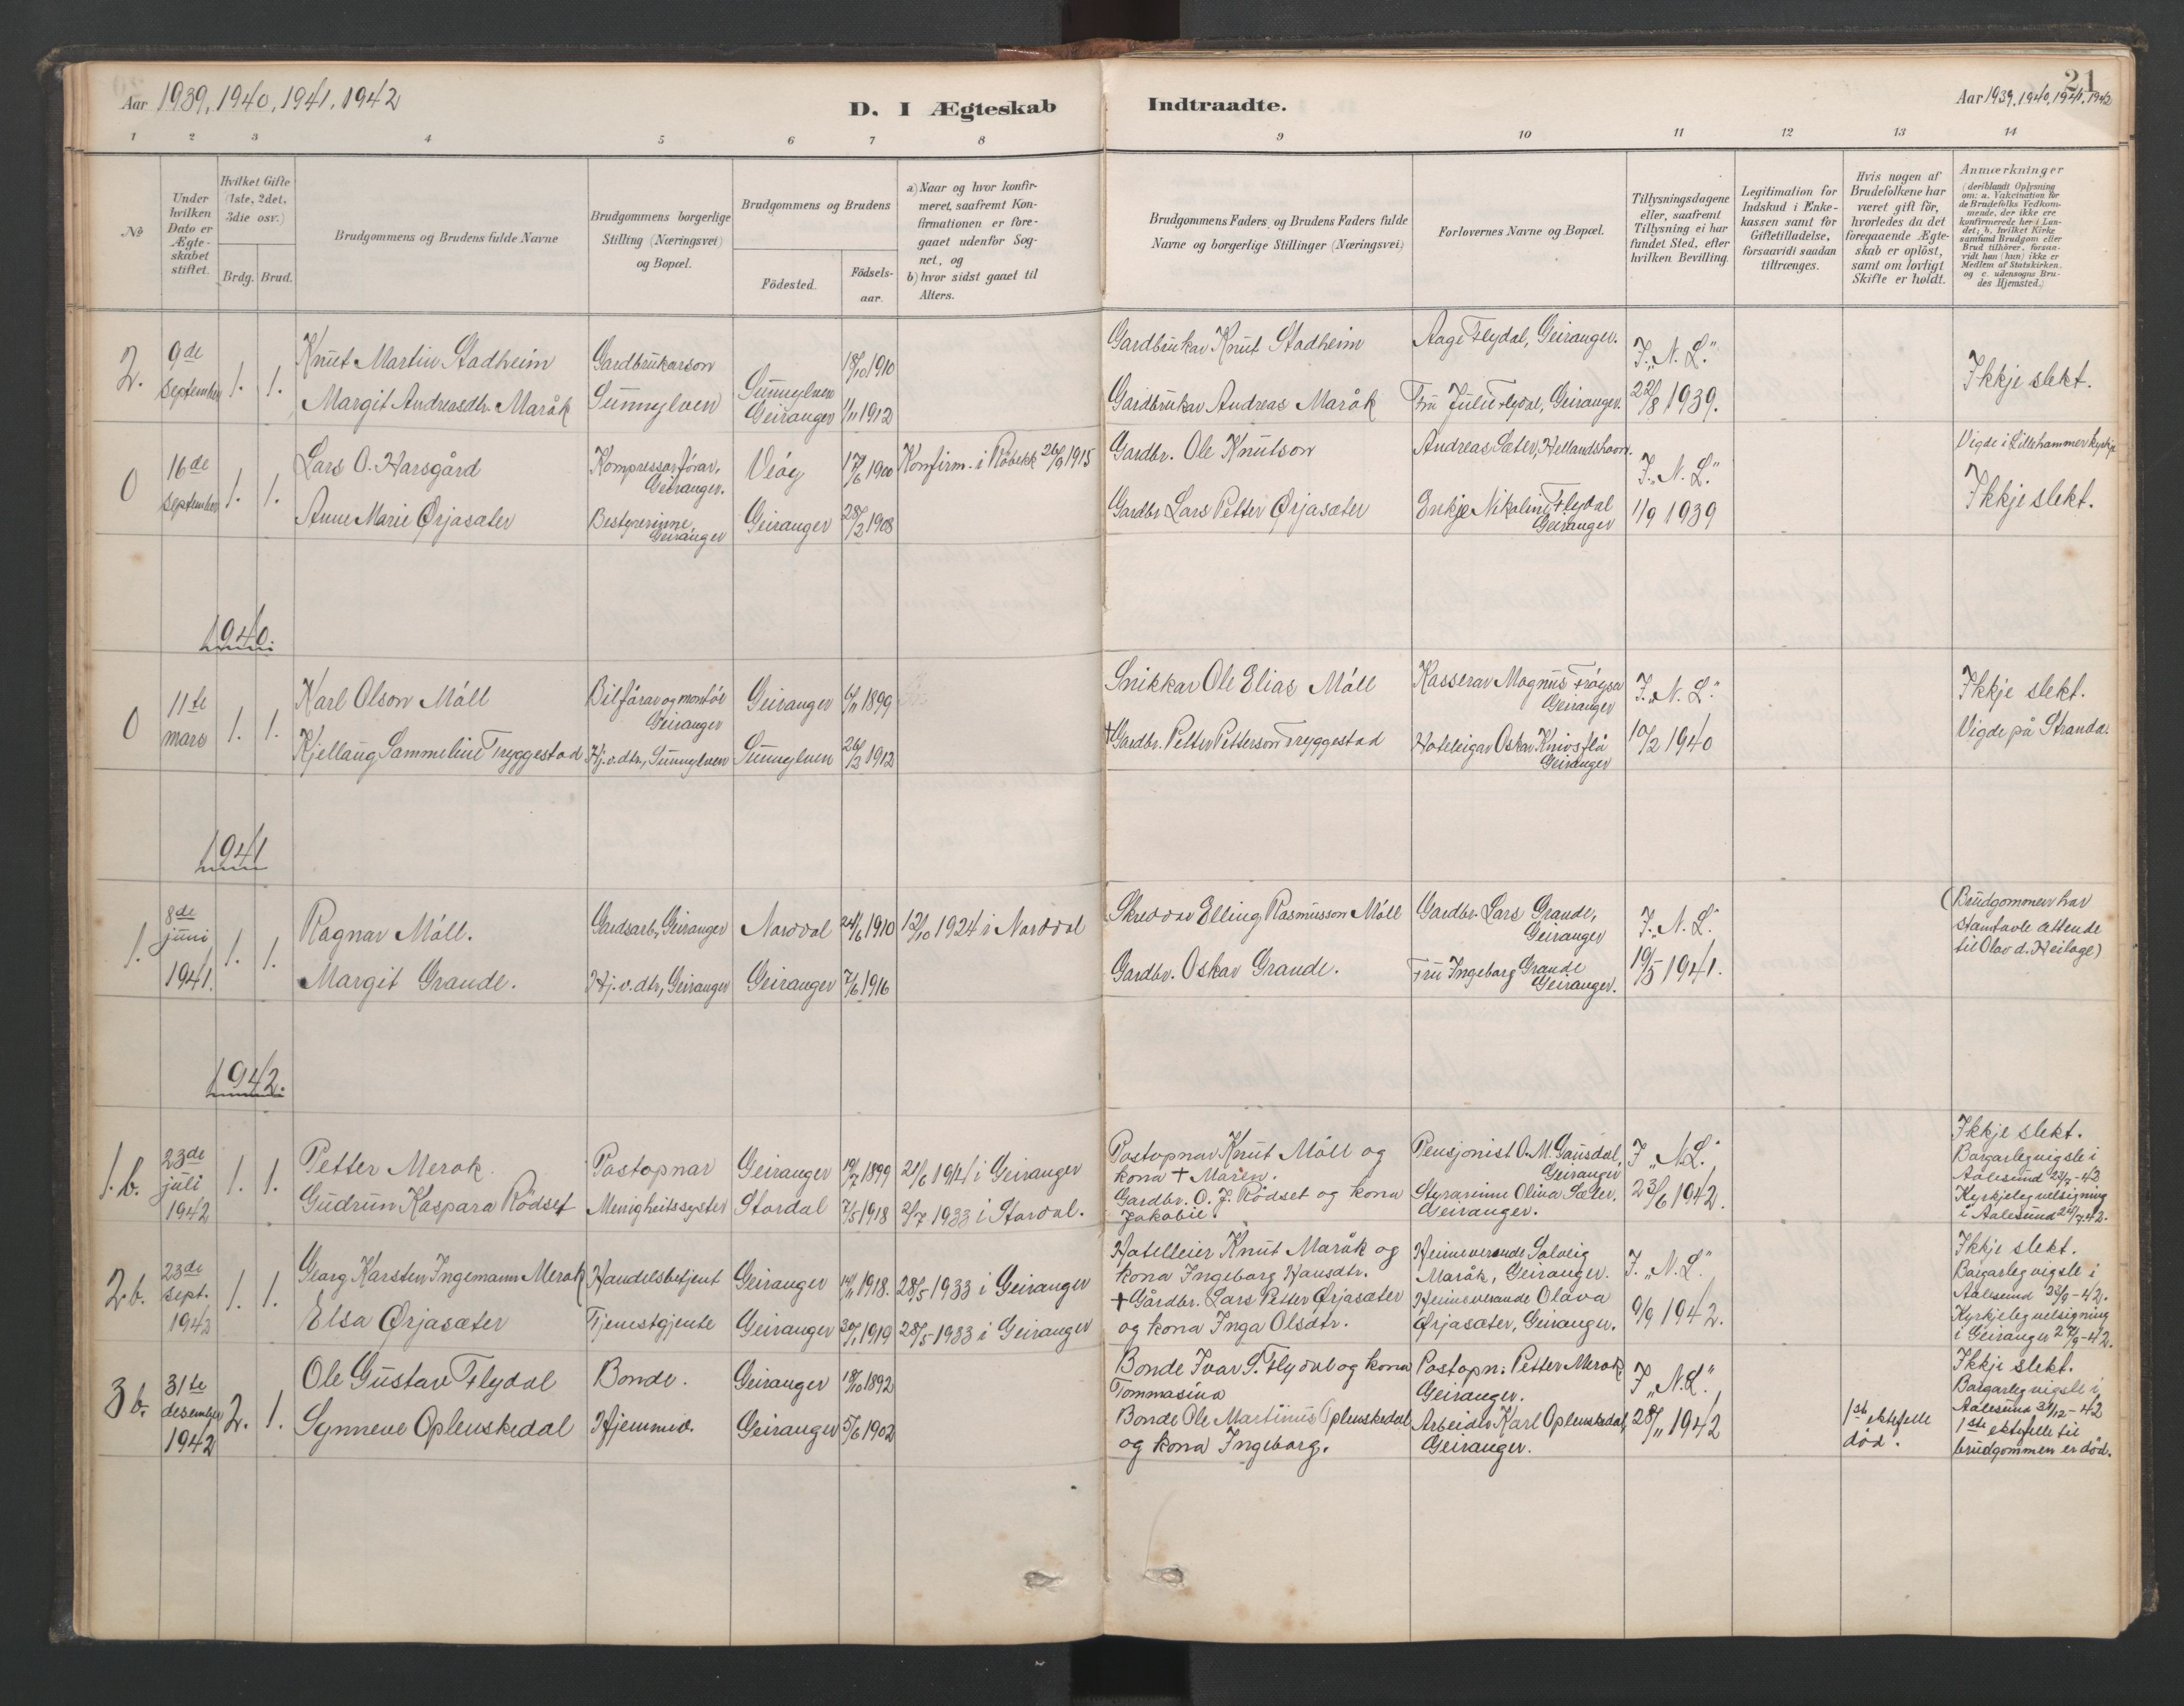 Aar 1939, 1940, 1941, 1942
D. I Ægteskab Indtraadte.
Aar 1939, 1940, 1941, 1942
21
1 2 3 4 5 6 7 8 9 10 11 12 13 14
No
Under hvilken Dato er Ægteskabet stiftet.
Hvilket Gifte (1ste, 2det, 3die osv.)
Brdg. Brud.
Brudgommens og Brudens fulde Navne
Brudgommens borgerlige Stilling (Næringsvei) og Bopæl.
Brudgommens og Brudens
Födested.
Födsels-aar.
a) Naar og hvor konfirmeret, saafremt Konfirmationen er foregaaet udenfor Sognet, og
b) hvor sidst gaaet til Alters.
Brudgommens Faders og Brudens Faders fulde Navne og borgerlige Stillinger (Næringsvei)
Forlovernes Navne og Bopæl.
Tillysningsdagene eller, saafremt Tillysning ei har fundet Sted, efter hvilken Bevilling.
Legitimation for Indskud i Enkekassen samt for Giftetilladelse, forsaavidt saadan tiltrænges.
Hvis nogen af Brudefolkene har været gift för, hvorledes da det foregaaende Ægteskab er oplöst, samt om lovligt Skifte er holdt.
Anmærkninger
(deriblandt Oplysning om: a. Vakcination for de Brudefolks Vedkommende, der ikke ere konfirmerede her i Landet; b. hvilket Kirkesamfund Brudgom eller Brud tilhörer, forsaavidt han (hun) ikke er Medlem af Statskirken, og c. udensogns Brudes Hjemsted.)
2. 9de september 1. 1.
Knut Martin Stadheim Gardbrukarson Sunnylven 18/10 1910
Margit Andreasdtr. Maråk Sunnylven Geiranger 1/11 1912
Gardbrukar Knut Stadheim Aage Flydal, Geiranger. I „N. L."
Gardbrukar Andreas Maråk Fru Julie Flydal, Geiranger. 22/8 1939.
Ikkje slekt.
0 16de september 1. 1.
Lars O. Harsgård Kompressorförar, Geiranger. Veöy 17/6 1900 Konfirm. i Röbekk 26/9 1915
Anne Marie Ørjasæter Bestyrerinne, Geiranger Geiranger 28/2 1908
Gardbr. Ole Knutson Andreas Sæter, Hellandshavn. I „N. L."
Gardbr. Lars Petter Ørjasæter Enkje Nikoline Flydal Geiranger 11/9 1939
Vigde i Lillehammer kyrkje
Ikkje slekt.
1940.
0 11te mars 1. 1.
Karl Olson Möll Bilförar og montör Geiranger Geiranger 6/11 1899
Kjellaug Sammeline Tryggestad Hj.v.dtr, Sunnylven Sunnylven 26/2 1912
Snikkar Ole Elias Möll Kasserar Magnus Fröysa Geiranger I „N. L."
† Gardbr. Petter Petterson Tryggestad Hoteleigar Oskar Knivsflå Geiranger 10/2 1940
Ikkje slekt.
Vigde på Stranda.
1941
1. 8de juni 1941. 1. 1.
Ragnar Möll. Gardsarb., Geiranger Norddal 24/6 1910 12/10 1924 i Norddal
Margit Grande. Hj.v.dtr, Geiranger Geiranger 7/6 1916
Skreddar Elling Rasmusson Möll Gardbr. Lars Grande, Geiranger I „N. L."
Gardbr. Oskar Grande. Fru Ingeborg Grande Geiranger. 19/5 1941.
(Brudgomonen har
stamtavle ættende
til Olav d. Heilage)
1942.
1.b. 23de juli 1942 1. 1.
Petter Merok. Postopnar Geiranger 19/7 1899 21/6 1914 i Geiranger
Gudrun Kaspara Rödset Menighetssyster Stordal 7/5 1918 2/7 1933 i Stordal.
Postopnar Knut Möll og kona † Maren. Pensjonist O. M. Gausdal, Geiranger I „N.L."
Gardbr. O. J. Rödset og kona Jakobie. Styrarinne Olina Sæter, Geiranger. 23/6 1942.
Ikkje slekt.
Borgarleg vigsle i
Aalesund 23/7 - 42
Kyrkjeleg velsigning
i Aalesund 23/7 42.
2.b. 23de sept. 1942 1. 1.
Georg Karsten Ingemann Merok Handelsbetjent Geiranger 14/11 1918. 28/5 1933 i Geiranger
Elsa Ørjasæter Tjenestgjente Geiranger 30/1 1919 28/5 1933 i Geiranger
Hotelleier Knut Maråk og kona Ingeborg Hansdtr. Heimeverande Solveig Maråk, Geiranger. I. „N. L."
† Gårdbr. Lars Petter Ørjasæter og kona Inga Olsdtr. Heimeverande Olava Ørjasæter, Geiranger. 9/9 1942.
Ikkje slekt.
Borgarleg vigsle i
Aalesund 23/9 - 42.
Kyrkjeleg velsigning
i Geiranger 27/9 - 42.
3 b. 31te desember 1942 2. 1.
Ole Gustav Flydal Bonde. Geiranger 18/10 1892
Synneve Oplenskedal Hjemmev. Geiranger 5/6 1902
Bonde Ivar S. Flydal og kona Tommasina Postopn. Petter Merok Geiranger. I „N.L."
Bonde Ole Martinus Oplenskedal og kona Ingeborg. Arbeider Karl Oplenskedal, Geiranger. 28/11 1942
1ste ektefelle död.
Ikkje slekt.
Borgarleg vigsle i
Aalesund 31/12 - 42
1ste ektefelle til
brudgommen er död.